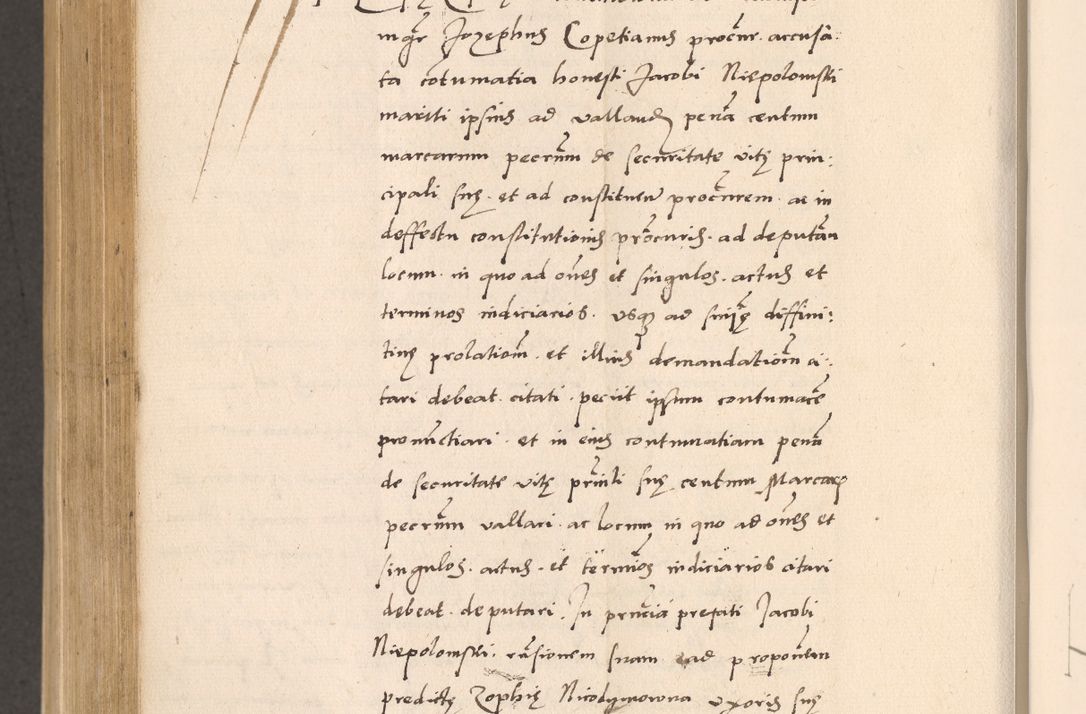 mgr Jozephus Copetianus procur. accusa:
ta cotumatia honesti Jacobi Niepolomski
mariti ipsius ad vallandū pena centum
marcarum pecrum de securitate vitę prin:
cipali suę. et ad constituen procurem. ac in
deffectu constitutionis procuris. ad deputan
locum. in quo ad omes et singulos. actus et
terminos iudiciarios. usq ad snię diffini:
tiuę prolationem. et illius demandationem ci:
tari debeat. citati. peciit ipsum contumacē
pronunctiari. et in eius contumatiam pena
de securitate vitę prinli suę centum Marcaꝝ
pecrum vallari. ac locum in quo ad omes et
singulos. actus. et terminos iudiciarios citari
debeat. deputari. In pncia prefati Jacobi
Niepolomski. ad proponem
predictę Zophię Nicodymowna uxoris suę